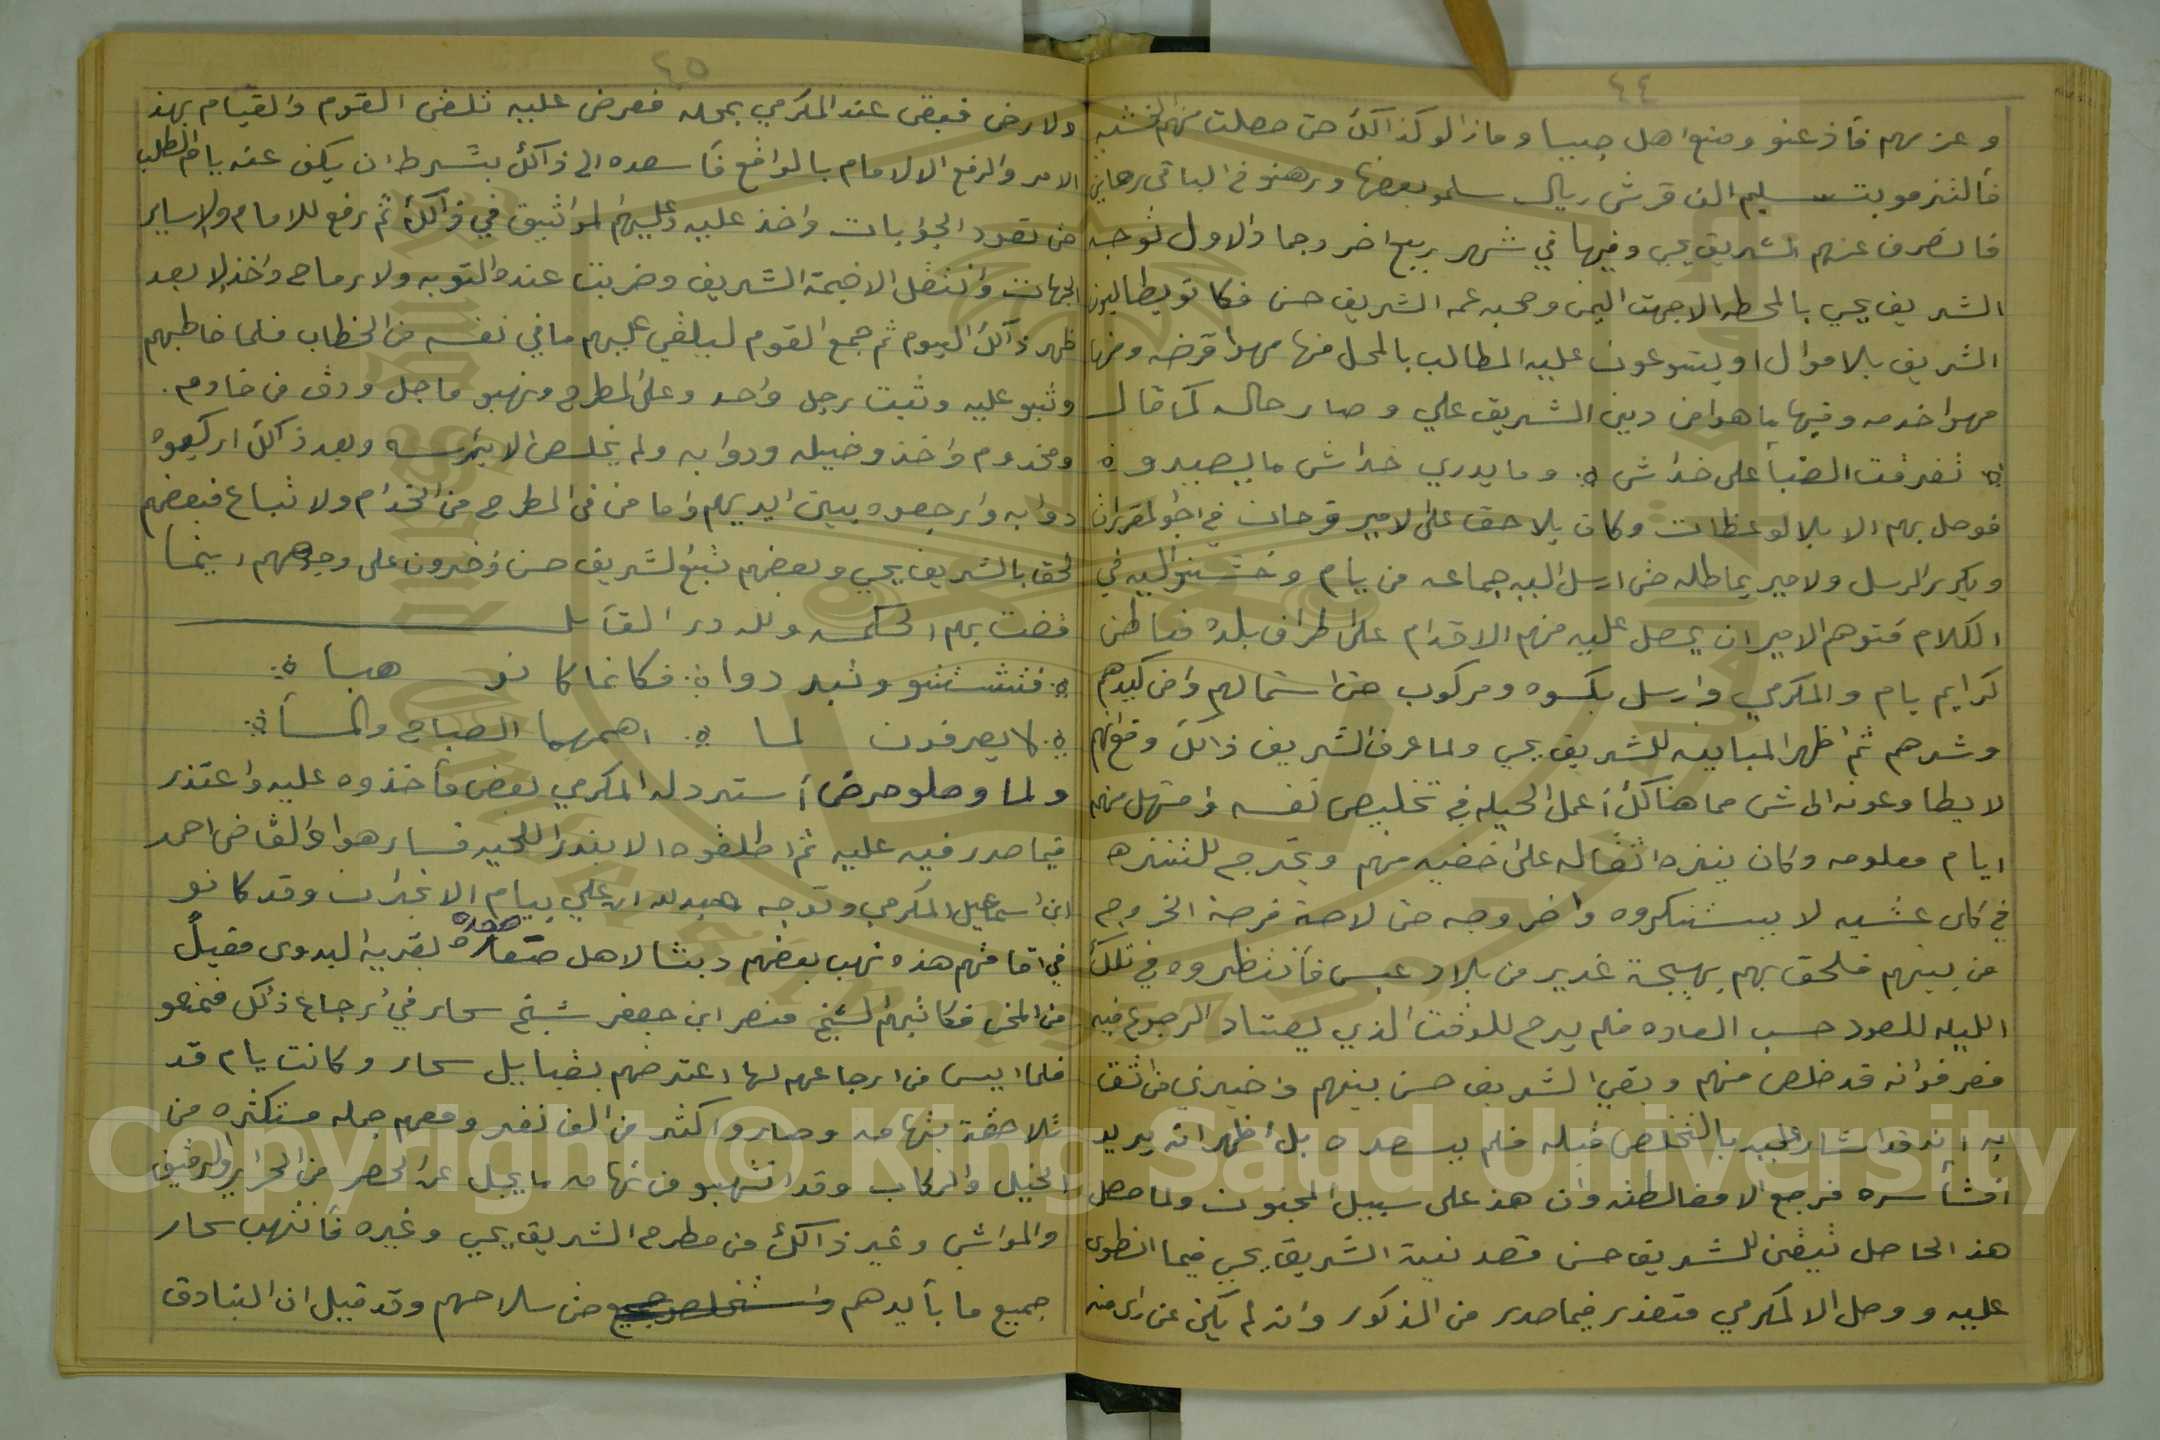 ٤٤
وعزمهم فأذعنو ومنع اهل جيبا ومازالو كذالك حتى حصلت منهم الخشيه
فألتزمو بتسليم الف قرش ريال سلمو بعضها ورهنو في الباقي رهاين
فانصرف عنهم الشريف يحيى وفيها في شهر ربيع اخر وجماد الاول توجه
الشريف يحيى بالمحطه الا جهت اليمن وصحبه عمه الشريف حسن فكانو يطالبون
الشريف بالاموال او يتنوعون عليه المطالب بالمحل منها مهوا قرضه ومنها
مهوا خدمه وفيها ماهوا من دين الشريف علي وصار حاله كما قال
تفرقت الضبأ على خداش وما يدري خداش ما يصيدو
فوصل بهم الا بلا لو عظات وكان يلاحق على الامير فرحان في اجو المقررات
ويكرر الرسل ولامير يماطله حتى ارسل اليه جماعه من يام وخشنو اليه في
الكلام فتوهم الامير ان يحصل عليه منهم الاقدام على اطراف بلده فباطن
كرايم يام والمكرمي وارسل بكسوه ومركوب حتى استمالهم وامن كيدهم
وشرهم ثم اظهر المباينه للشريف يحيى ولما عرف الشريف ذالك وقع انهم
لا يطاوعونه الى شى مما هنالك أعمل الحيله في تخليص نفسه وامتهل منهم
ايام معلومه وكان ينزه اثقاله على خفيه منهم ويخرج للتنزه
في كل عشيه لا يستنكروه واخروجه حتى لاحة فرصة الخروج
من بينهم فلحق بهم بهيجة غدير من بلاد عبس فأنتظروه في تلك
الليله للعود حسب العاده فلم يرح للوقت الذي يعتاد الرجوع فيه
فعرفو انه قد خلص منهم وبقي الشريف حسن بينهم واخبرني من اثق
به انه قد اشار عليه بالتخلص قبله فلم يسعده بل اظهر انه يريد
أفشأ سره فرجع الا مغالطته وان هذ على سبيل المجنون ولما حصل
هذ الحاصل تيقن للشريف حسن قصد نية الشريف يحيى فيما انطوى
عليه ووصل الا لمكرمي متعذر فيما صدر من المذكور وانه لم يكن عن راى منه
٤٥
ولا رضى فبقى عند المكرمي بمحله فعرض عليه تلقى القوم والقيام بهذ
الامر والرفع الا لامام بالواقع فأسعده الى ذالك بشرط ان يكف عنه يام الطلب
حتى تعود الجوابات واخذ عليه وعليهم المواثيق في ذالك ثم رفع للامام ولا ساير
الجهات وانتقل الا خيمة الشريف وضربت عنده التوبه ولا رماح واخذ لا بعد
ظهر ذالك اليوم ثم جمع القوم ليلقي عليهم مافي نفسه من الخطاب فلما خاطبهم
وثبو عليه وثبت رجل واحد وعلى المطرح ونهبو ماجل ودق من خادم
ومخدوم واخذ وخيله ودوابه ولم يخلص الا بئرسه وبعد ذالك اركبوه
دوابه وارجعوه بين ايديهم واما من في المطرح من الخدام ولا تباع فبعضهم
لحق بالشريف يحيى وبعضهم تبع الشريف حسن واخرون على وجوههم اينما
قضت بهم الحكمه ولله در القآيل
فتشتتو وتبددوا فكانما كانو هبا
لا يعرفون لما اهمهما الصباح والمسأ
ولما وصلو حرض أستردله المكرمي بعض مأخذوه عليه واعتذر
فيما صدر فيه عليه ثم اطلقوه الا بندر اللحيه فسار هوا والقاضى احمد
ابن اسماعيل المكرمي وتوجه عبدالله ابن علي بيام الا نجران وقد كانو
في اقامتهم هذه نهب بعضهم دبشا لاهل صعده بقرية البدوى مقيلً
من المخى فكاتبهم الشيخ منصر ابن جعفر شيخ سحار في أرجاع ذلك فمنعو
فلما ايس من ارجاعهم لها اعترضهم بقبايل سحار وكانت يام قد
تلاحقة بتهامه وصارو اكثر من الف نفر ومعهم جمله مستكثره من
الخيل والركاب وقد انتهبو من تهامه ما يجل عن الحصر من الحراير والرقيق
والمواشي وغير ذالك من مطرح الشريف يحيى وغيره فأنتهب سحار
جميع ما بأيدهم حتى سلاحهم وقد قيل ان البنادق